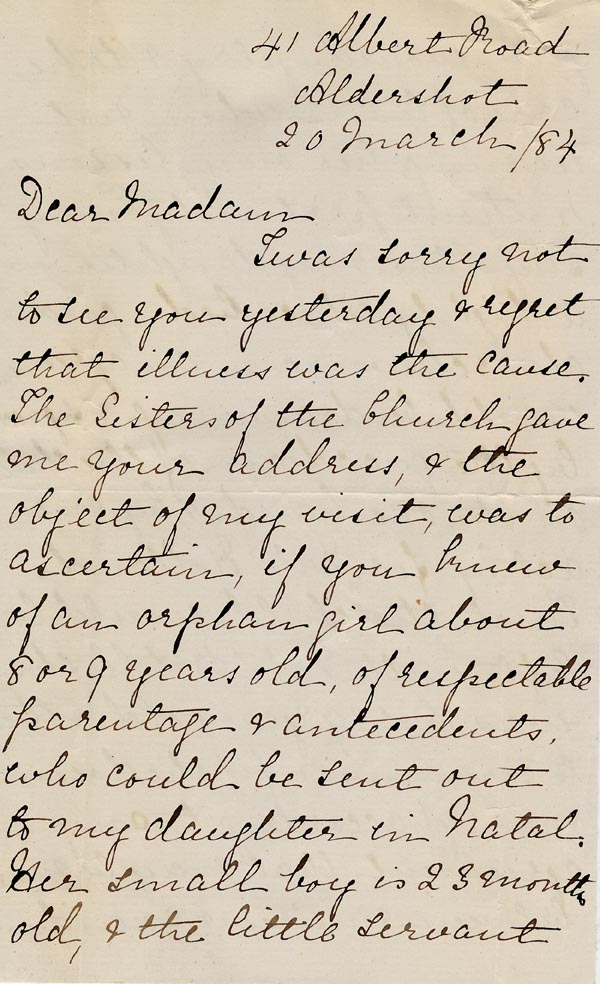 41 Albert Road
Aldershot
20 March /84
Dear Madam
I was sorry not
to see you yesterday & regret
that illness was the cause.
The Sisters of the Church gave
me your address, & the
object of my visit, was to
ascertain, if you knew
of an orphan girl about
8 or 9 years old, of respectable
parentage & antecedents,
who could be sent out
to my daughter in Natal.
Her small boy is 23 months
old, & the little servant